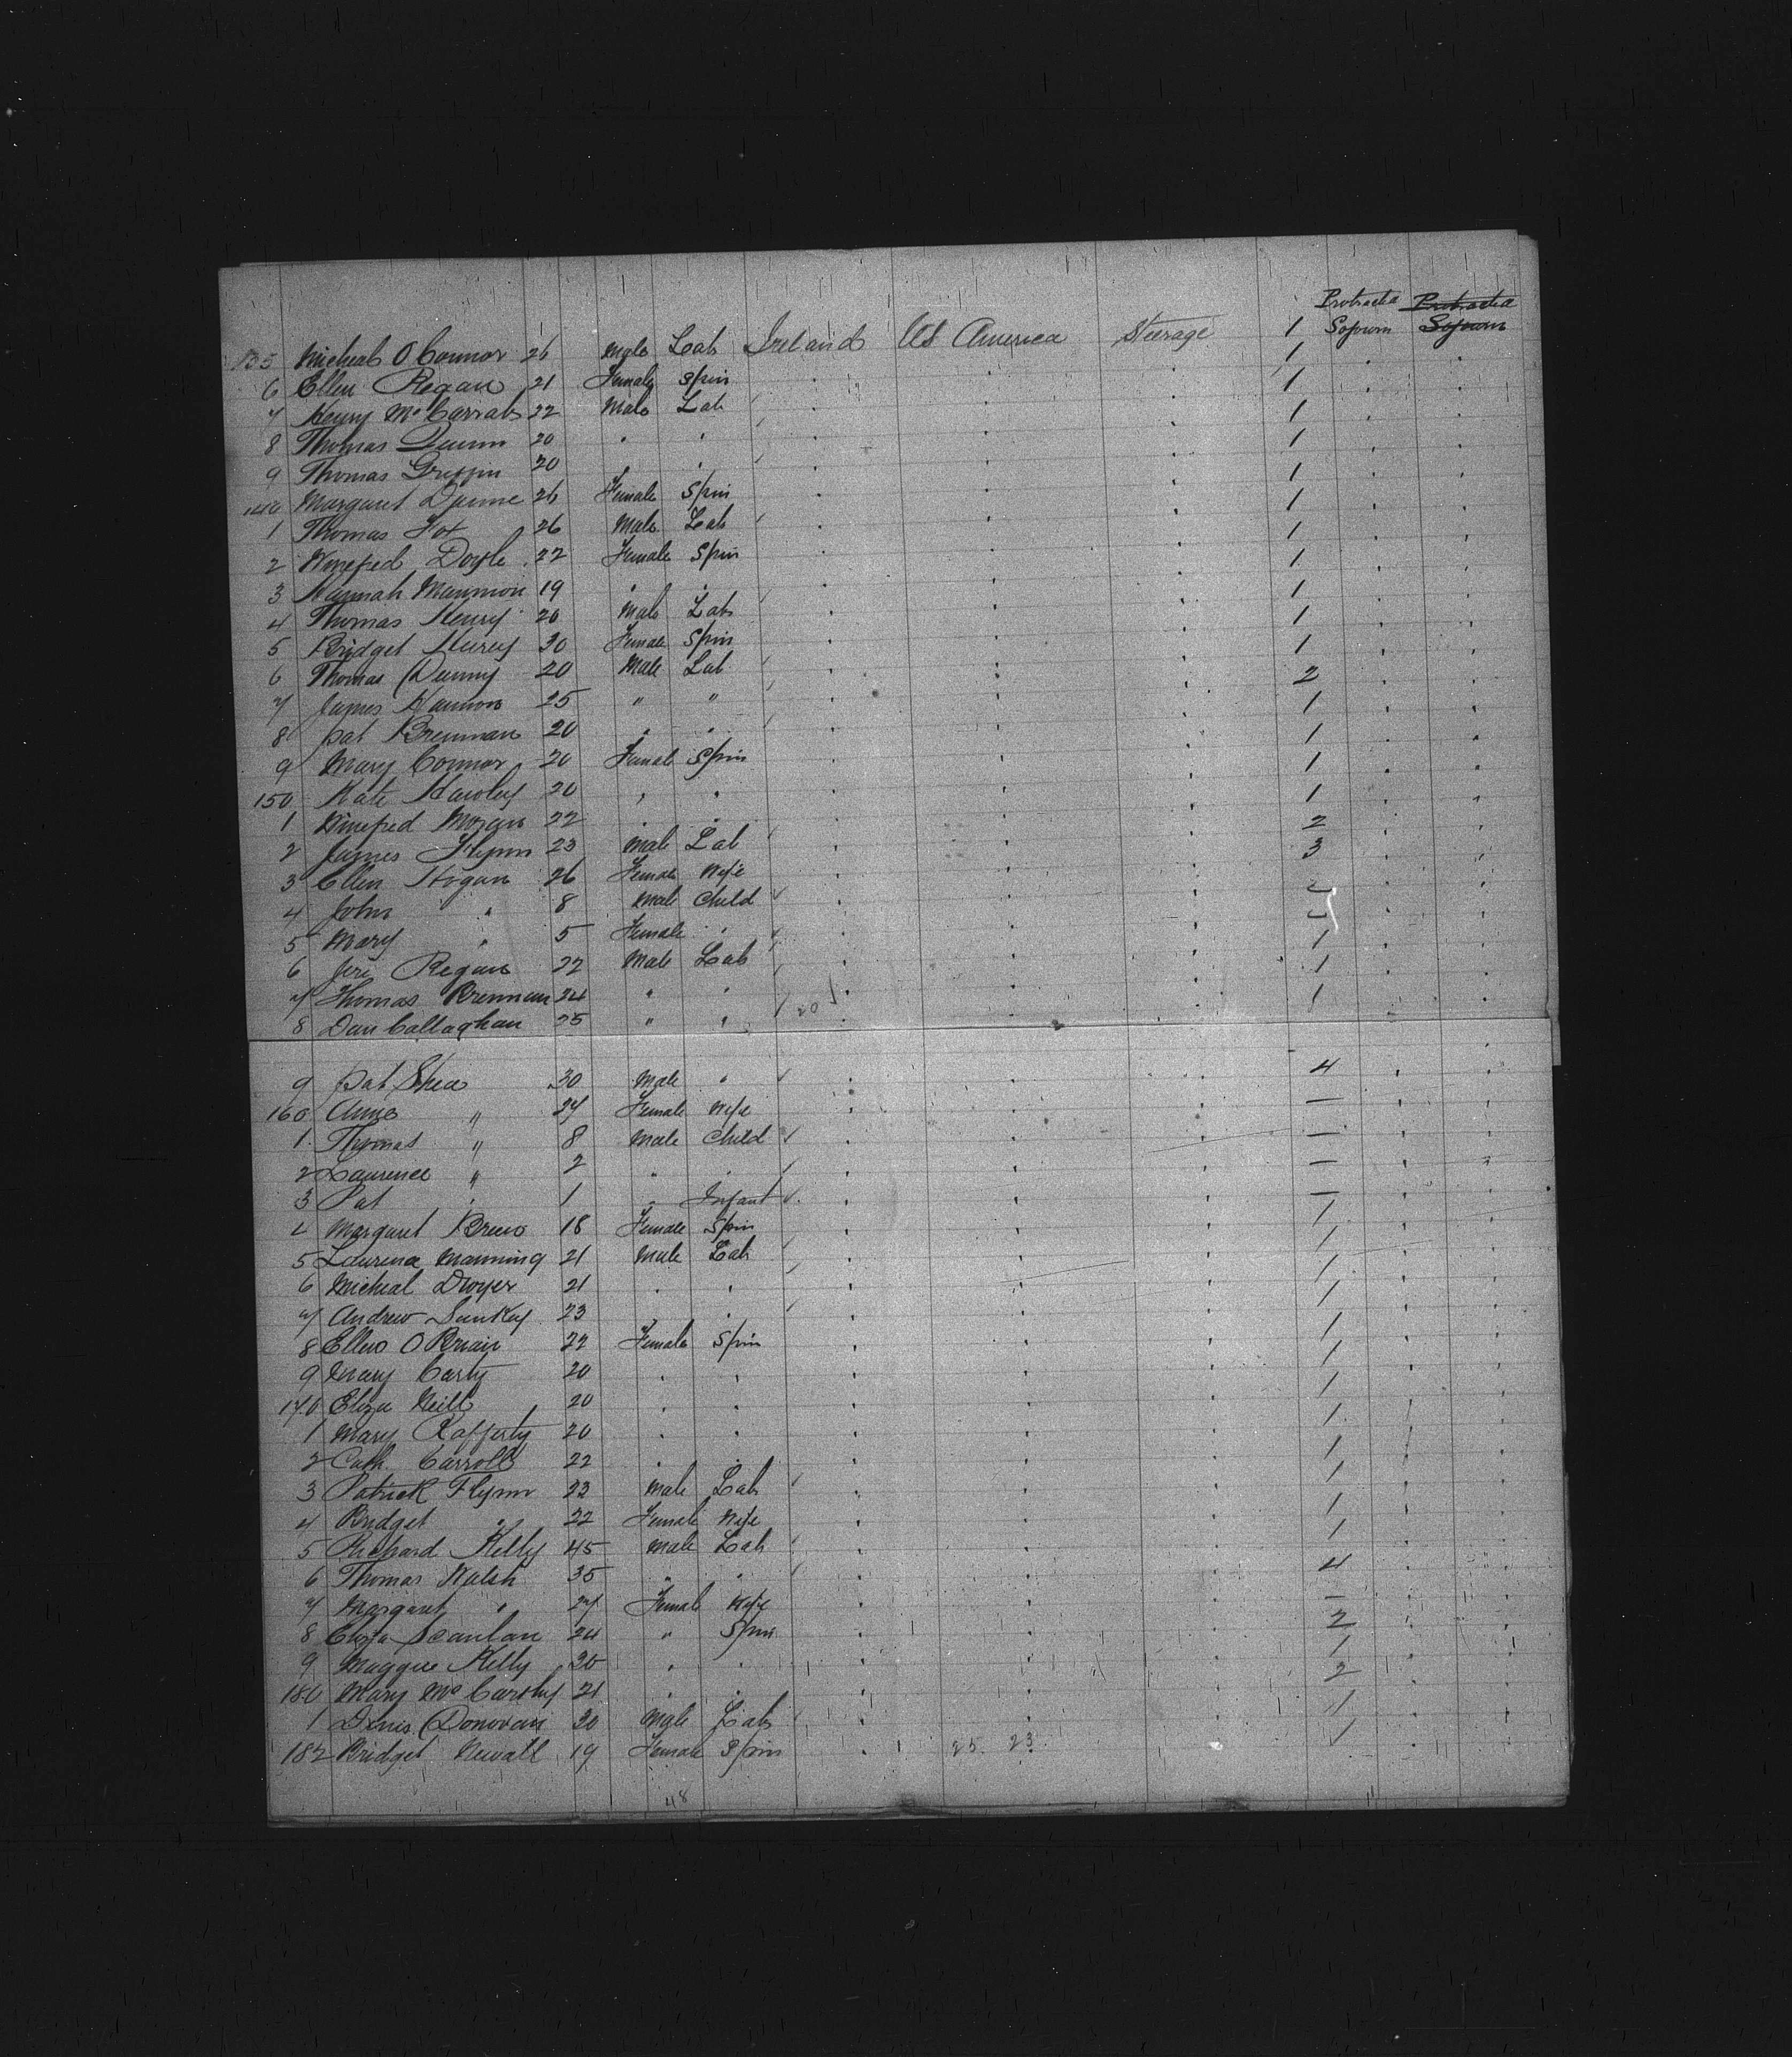 Protracted Protracted
135 Micheal O Connor 26 Male Lab Ireland US America Steerage 1 Sojourn Sojourn
6 Ellen Regan 21 Female Spin . . . 1 . .
7 Henry Mc 22 Male Lab . . . 1 . .
8 Thomas Quinn 20 . . . . . 1 . .
9 Thomas Griffin 20 . . . . . 1 . .
140 Margaret Dunne 26 Female Spin . . . 1 . .
1 Thomas Fox 26 Male Lab . . . 1 . .
2 Winefred Doyle 22 Female Spin . . . 1 . .
3 Hannah 19 . . . . . 1 . .
4 Thomas Henry 20 Male Lab . . . 1 . .
5 Bridget 30 Female Spin . . . 1 . .
6 Thomas Dunny 20 Male Lab . . . 1 . .
7 James Hannon 25 " " . . . 2 . .
8 Pat Brennan 20 . . . . . 1 . .
9 Mary Connor 20 Female Spin . . . 1 . .
150 Kate Hawley 20 , . . . . 1 . .
1 Winefred Moran 22 . . . . . 1 . .
2 James Flynn 23 Male Lab . . . 2 . .
3 Ellen Hogan 26 Female Wife . . . 3 . .
4 John " 8 Male Child . . . - . .
5 Mary " 5 Female . . . . - . .
6 Jere Regan 22 Male Lab . . . 1 . .
7 Thomas Brennan 24 " . . . . 1 . .
8 Dan Callaghan 25 " . 20 . . . 1 . .
9 Pat Shea 30 Male " . . . 4 . .
160 Anne " 27 Female Wife . . . — . .
1 Thomas " 8 Male Child . . . — . .
2 Laurence " 2 . . . . . — . .
3 Pat " 1 . Infant . . . — . .
4 Margaret 18 Female Spin . . . 1 . .
5 Laurence Manning 21 Male Lab . . . 1 . .
6 Micheal Dwyer 21 . . . . . 1 . .
7 Andrew Sankey 23 . . . . . 1 . .
8 Ellen O Brien 22 Female Spin . . . 1 . .
9 Mary Carty 20 . . . . . 1 . .
170 Eliza Neill 20 . . . . . 1 . .
1 Mary Rafferty 20 . . . . . 1 . .
2 Cath. Carroll 22 . . . . . 1 . .
3 Patrick Flynn 23 Male Lab . . . 1 . .
4 Bridget " 22 Female Wife . . . 1 . .
5 Richard Kelly 45 Male Lab . . . 1 . .
6 Thomas Walsh 35 . . . . . 4 . .
7 Margaret " 27 Female Wife . . . — . .
8 Eliza Scanlan 24 " Spin . . . 2 . .
9 Maggie Kelly 20 . . . . . 1 . .
180 Mary Mc Carthy 21 . . . . . 2 . .
1 Denis Donovan 30 Male Lab . . . 1 . .
182 Bridget Newall 19 Female Spin . 25. 23. . 1 . .
48